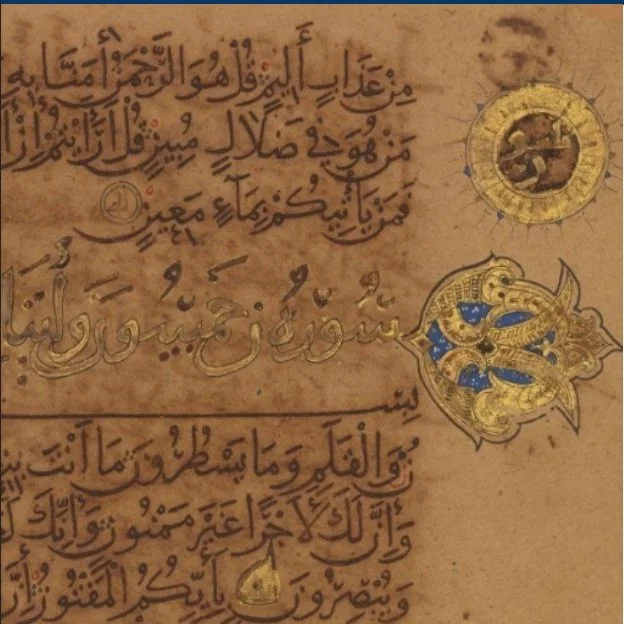 مِنْ عَذَابٍ أَلِيمٍ قُلْ هُوَ الرَّحْمَنُ أَمَنَّا بِهِ
مَنْ هُوَ فِي ضَلَالٍ مُبِينٍ قُلْ أَرَأَيْتُمْ إِنْ
فَمَنْ يَأْتِيكُمْ بِمَاءٍ مَعِينٍ
سُورَةُ ن خمسون و
بِسْـ
نْ وَالْقَلَمِ وَمَا يَسْطُرُونَ مَا أَنْتَ
وَإِنَّ لَكَ لَأَجْرًا غَيْرَ مَمْنُونٍ وَإِنَّكَ
وَيُبْصِرُونَ بِأَيِّكُمُ الْمَفْتُونُ إِنَّ